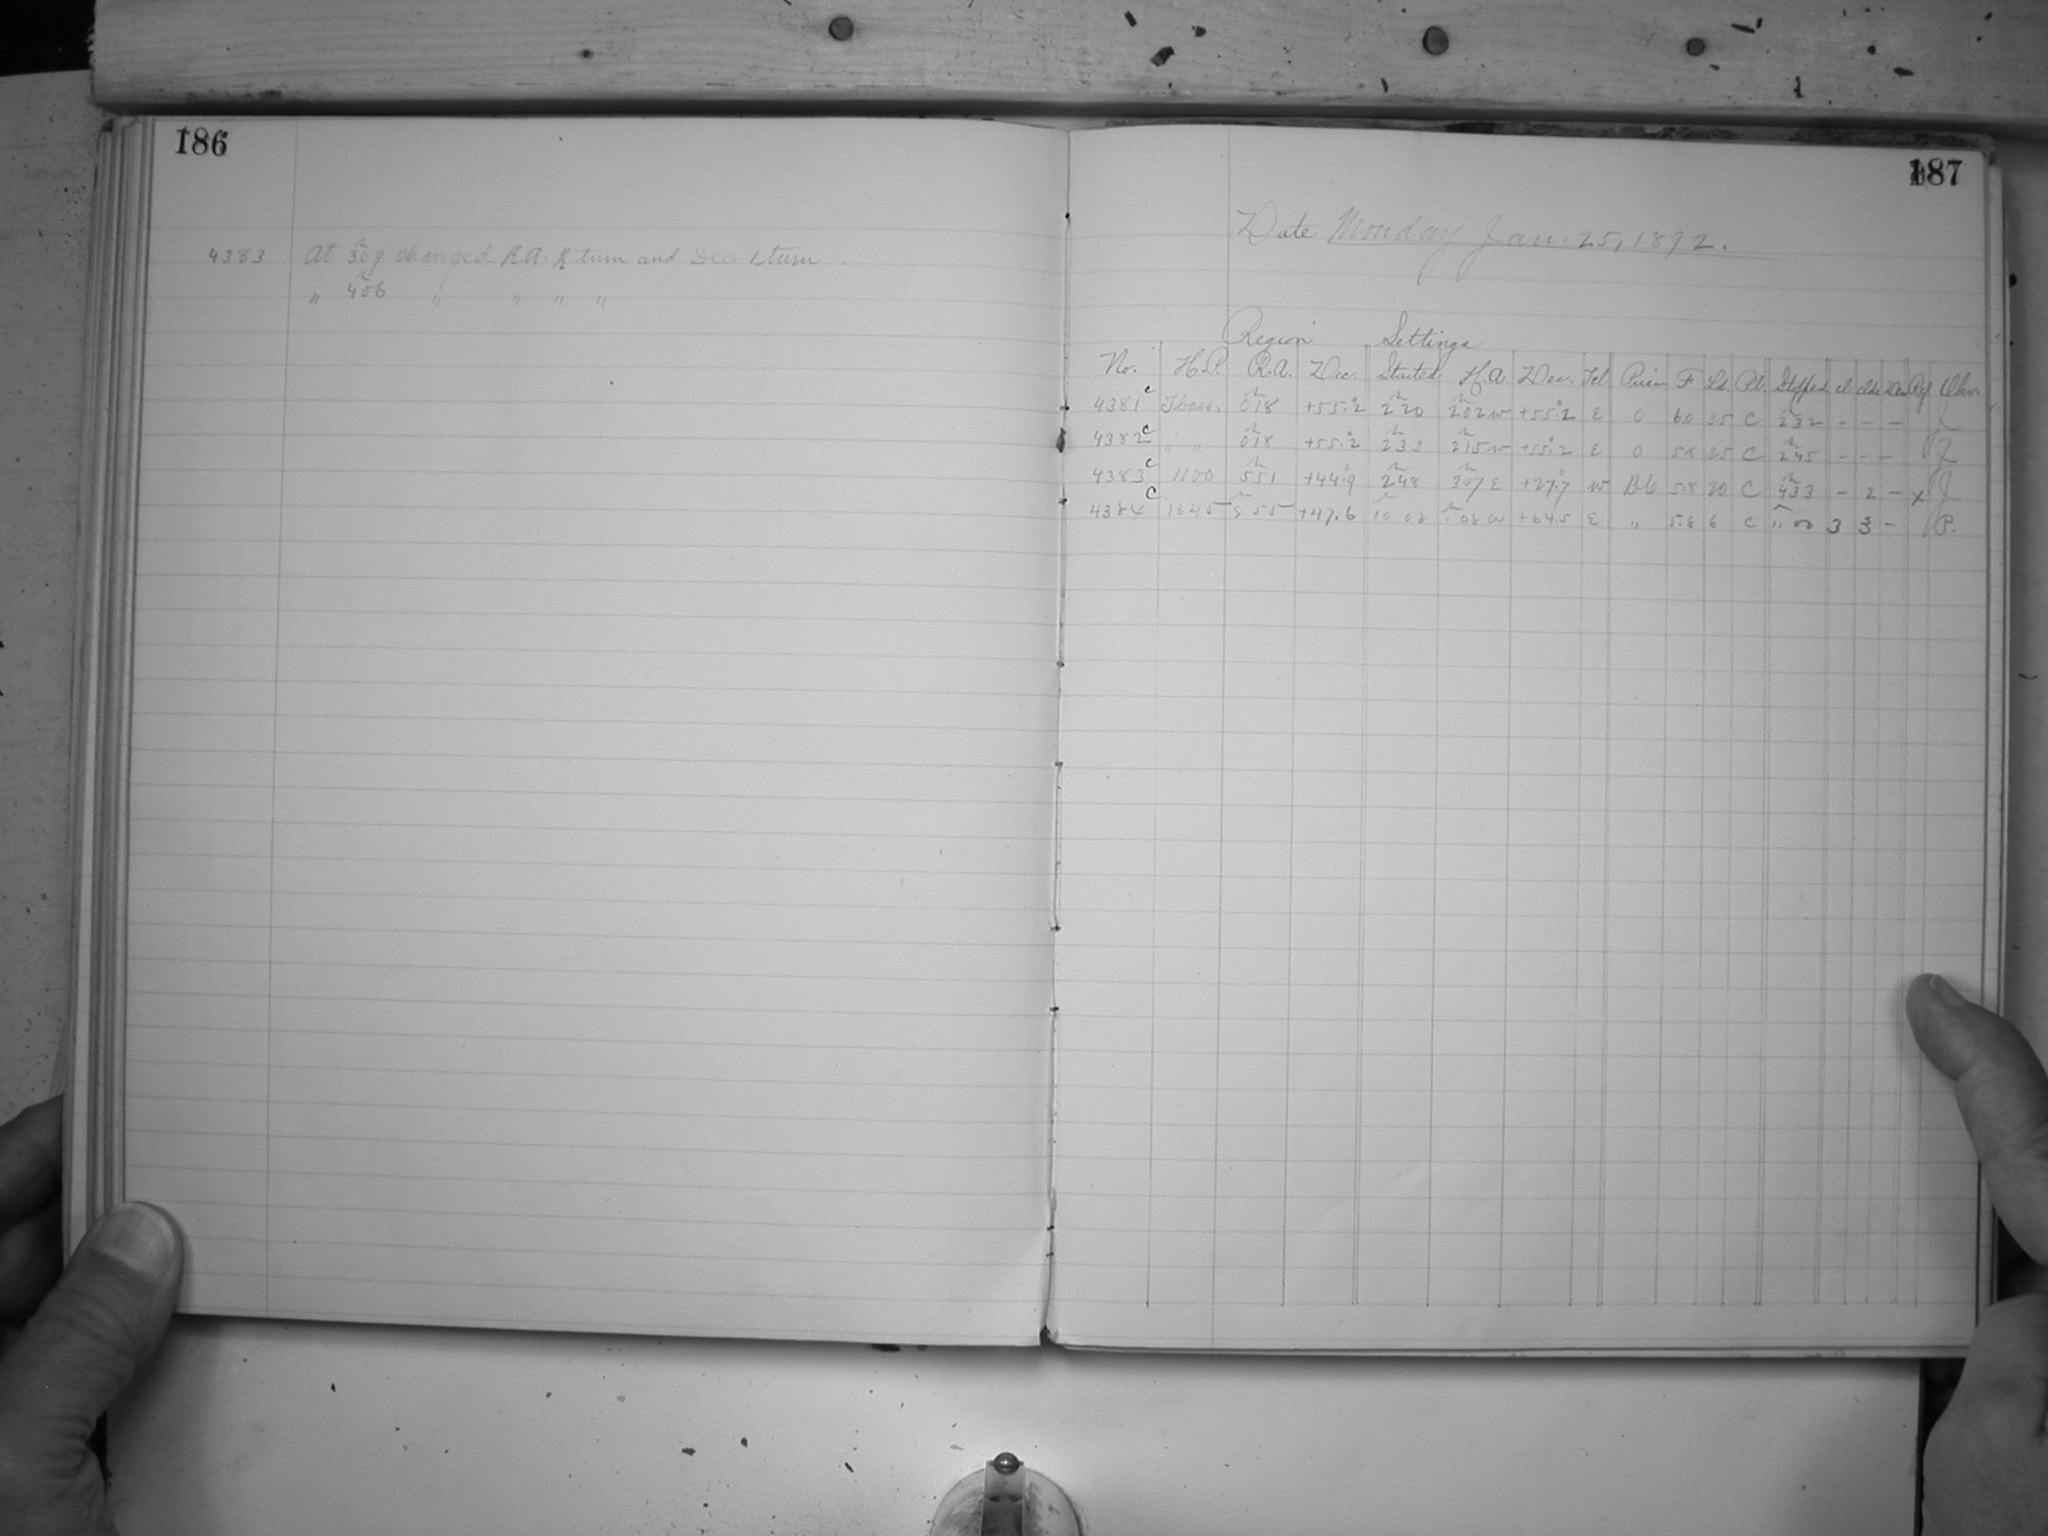 186
4383 At 3h09 changed R.A. ½ turn and Dec. 1 turn.
" 4h06 " " " "
187
Date Monday Jan. 25, 1892.
Region Settings
No. H.P. R.A. Dec. Started H.A. Dec. Tel Prism F Ld. Pl. Stopped cl. Ref. Obsr.
4381 c 0h18 +55°.2 2h20 2h02 w +55°.2 E 0 6.0 35 C 2h32 - - - J
4382 c " " 0h18 +55°.2 2h33 2h15 w +55°.2 E 0 5.8 35 C 2h45 - - - J
4383 c 1100 5h51 +44°.9 2h48 3h07 E +27°.7 w 5.8 20 C 4h33 - 2 - x J
4384 c 1645 55 +47.6 10h08 1h08 w +64.5 E " 5.8 6 C 11h00 3 3 - P.